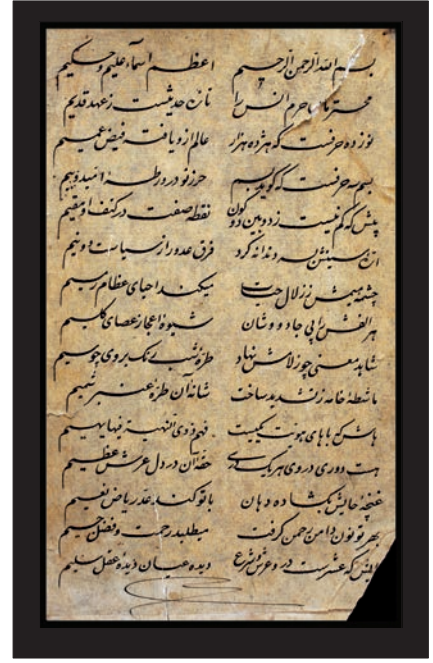 بسم الله الرحمن الرحیم اعظم اسماء علیم و حکیم
محترمان حرم انس را تازه حدیثیست ز عهد قدیم
نوزده حرفست که هژده هزار عالم ازو یافته فیض عمیم
بسم سه حرفست که گوید بسم حرز تو در ورطهٔ امید و بیم
بیش که کم نیست ز دو بین دو کون نقطه صفت در کنف او مقیم
ارهٔ سینش بسه دندانه کرد فرق عدو را ز سیاست دو نیم
چشمهٔ میمش ز زلال حیات میکند احیای عظام رمیم
هر الفش از پی جادووشان شیوهٔ اعجاز عصای کلیم
شاهد معنی چو ز لامش نهاد طرهٔ شبرنگ بروی چو سیم
ماشطهٔ خامه ز تشدید ساخت شانهٔ آن طرهٔ عنبر شمیم
هاش که با های هویت یکیست فهم ذوی النهیة فیها یهیم
هست دو دری در وی هر یک حقهٔ آن در دل عرش عظیم
غنچهٔ حایش بگشاده دهان با تو کند عد ریاض نعیم
بهر تو نون دامن رحمن گرفت میطلبد رحمت و فضل جسیم
که عشرست در و عرش و شرع دیده عیان دیدهٔ عقل سلیم